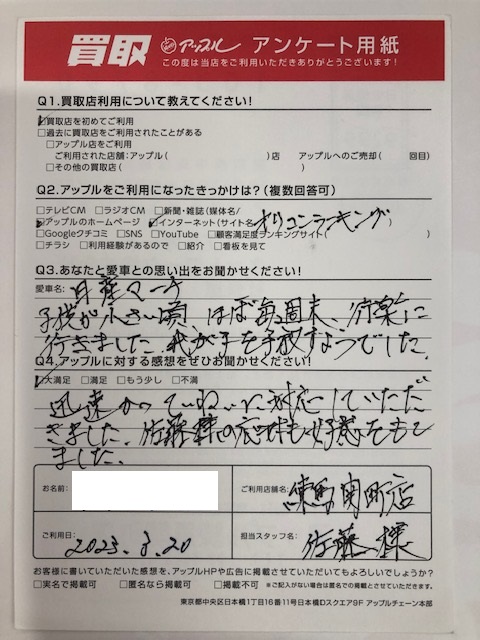 買取 アップル アンケート用紙
この度は当店をご利用いただきありがとうございます!
Q1.買取店利用について教えてください!
☑買取店を初めてご利用
□過去に買取店をご利用されたことがある
□アップル店をご利用
ご利用された店舗:アップル( )店 アップルへのご売却( 回目)
□その他の買取店( )
Q2.アップルをご利用になったきっかけは?(複数回答可)
□テレビCM □ラジオCM □新聞・雑誌(媒体名/
☑アップルのホームページ ☑インターネット(サイト名 オリコンランキング )
□Googleクチコミ □SNS □YouTube □顧客満足度ランキングサイト( )
□チラシ □利用経験があるので □紹介 □看板を見て
Q3.あなたと愛車との思い出をお聞かせください!
愛車名: 日産マーチ
子供が小さい頃、ほぼ毎週末、行楽に
行きました。我が子を手放すようでした。
Q4.アップルに対する感想をぜひお聞かせください!
☑大満足 □満足 □もう少し □不満
迅速かつていねいに対応していただ
きました。佐藤様の応対も好感をもて
ました。
お名前:
ご利用店舗名: 練馬関町店
ご利用日: 2023.8.20
担当スタッフ名: 佐藤様
お客様に書いていただいた感想を、アップルHPや広告に掲載させていただいてもよろしいでしょうか?
□実名で掲載可 □匿名なら掲載可 □掲載不可 ※ご記入がない場合は匿名での掲載とさせていただきます。
東京都中央区日本橋1丁目16番11号日本橋Dスクエア9F アップルチェーン本部